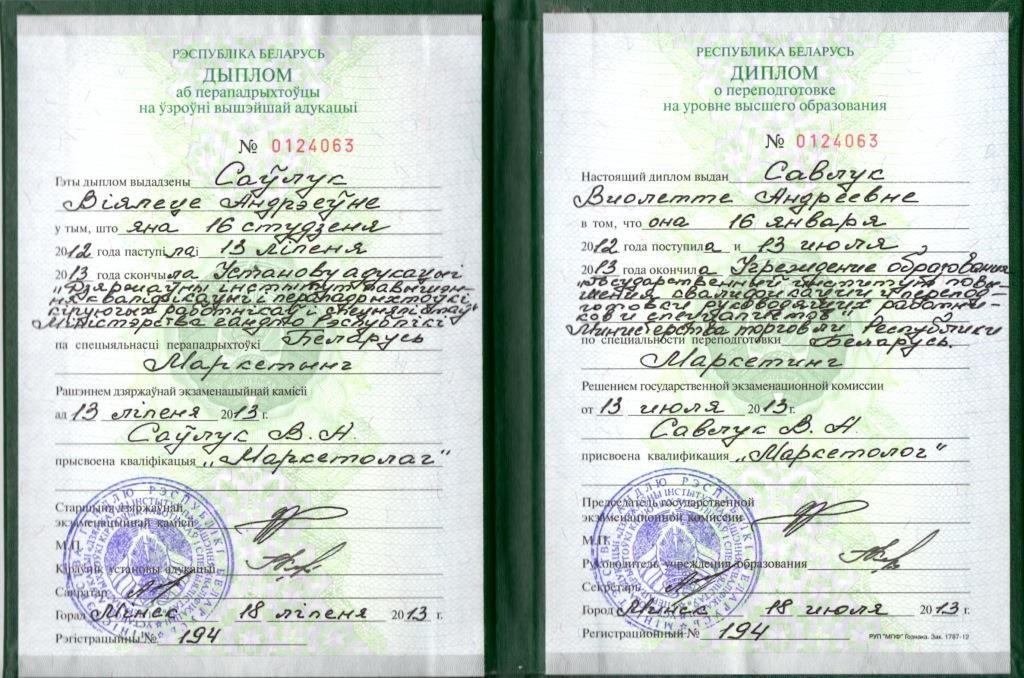 РЭСПУБЛІКА БЕЛАРУСЬ
ДЫПЛОМ
аб перападрыхтоўцы
на ўзроўні вышэйшай адукацыі
№ 0124063
Гэты дыплом выдадзены Саўлук
Віялеце Андрэеўне
у тым, што яна 16 студзеня
2012 года паступіла і 13 ліпеня
2013 года скончыла Установу адукацыі
"Дзяржаўны інстытут павышэн-
ня кваліфікацыі і перападрыхтоўкі
кіруючых работнікаў і спецыялістаў"
Міністэрства гандлю Рэспублікі
па спецыяльнасці перападрыхтоўкі Беларусь
Маркетынг
Рашэннем дзяржаўнай экзаменацыйнай камісіі
ад 13 ліпеня 2013 г.
Саўлук В. А.
прысвоена кваліфікацыя „Маркетолаг"
Старшыня дзяржаўнай
экзаменацыйнай камісіі
М.П.
Кіраўнік установы адукацыі
Сакратар
Горад Мінск 18 ліпеня 2013 г.
Рэгістрацыйны № 194
РЕСПУБЛИКА БЕЛАРУСЬ
ДИПЛОМ
о переподготовке
на уровне высшего образования
№ 0124063
Настоящий диплом выдан Савлук
Виолетте Андреевне
в том, что она 16 января
2012 года поступила и 13 июля
2013 года окончила Учреждение образования
"Государственный институт повы-
шения квалификации и перепод-
готовки руководящих работни-
ков и специалистов"
Министерства торговли Республики
по специальности переподготовки Беларусь.
Маркетинг
Решением государственной экзаменационной комиссии
от 13 июля 2013 г.
Савлук В. А.
присвоена квалификация „Маркетолог"
Председатель государственной
экзаменационной комиссии
М.П.
Руководитель учреждения образования
Секретарь
Город Минск 18 июля 2013 г.
Регистрационный № 194
РУП "МПФ" Гознака. Зак. 1787-12